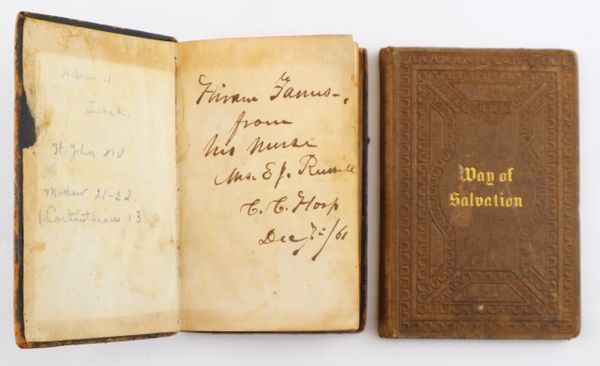 Heben 11
Luke 2.
St. John XIV
Mathew 21-22.
1. Corinthians 13.
Hiram
from
his Nurse
Mrs. E. J. Russell
C. C. Hosp
Dec 7th/61
Way of
Salvation